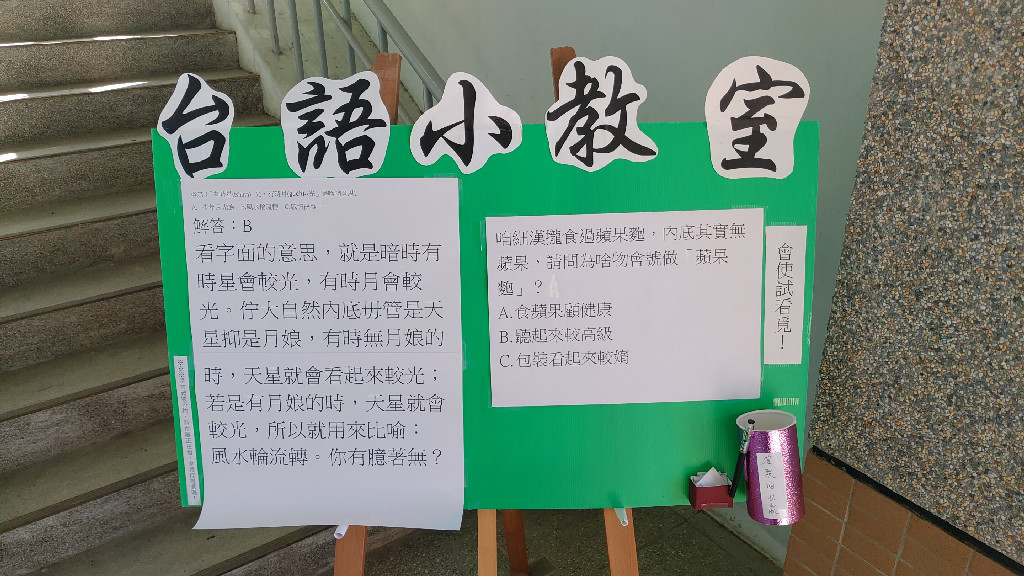 台語小教室
解答：B
看字面的意思，就是暗時有
時星會較光，有時月會較
光。佇大自然內底毋管是天
星抑是月娘，有時無月娘的
時，天星就會看起來較光；
若是有月娘的時，天星就會
較光，所以就用來比喻：
風水輪流轉。你有臆著無？
咱細漢攏食過蘋果麵，內底其實無
蘋果，請問為啥物會號做「蘋果
麵」？
A.食蘋果顧健康
B.聽起來較高級
C.包裝看起來較媠
會使試看覓！